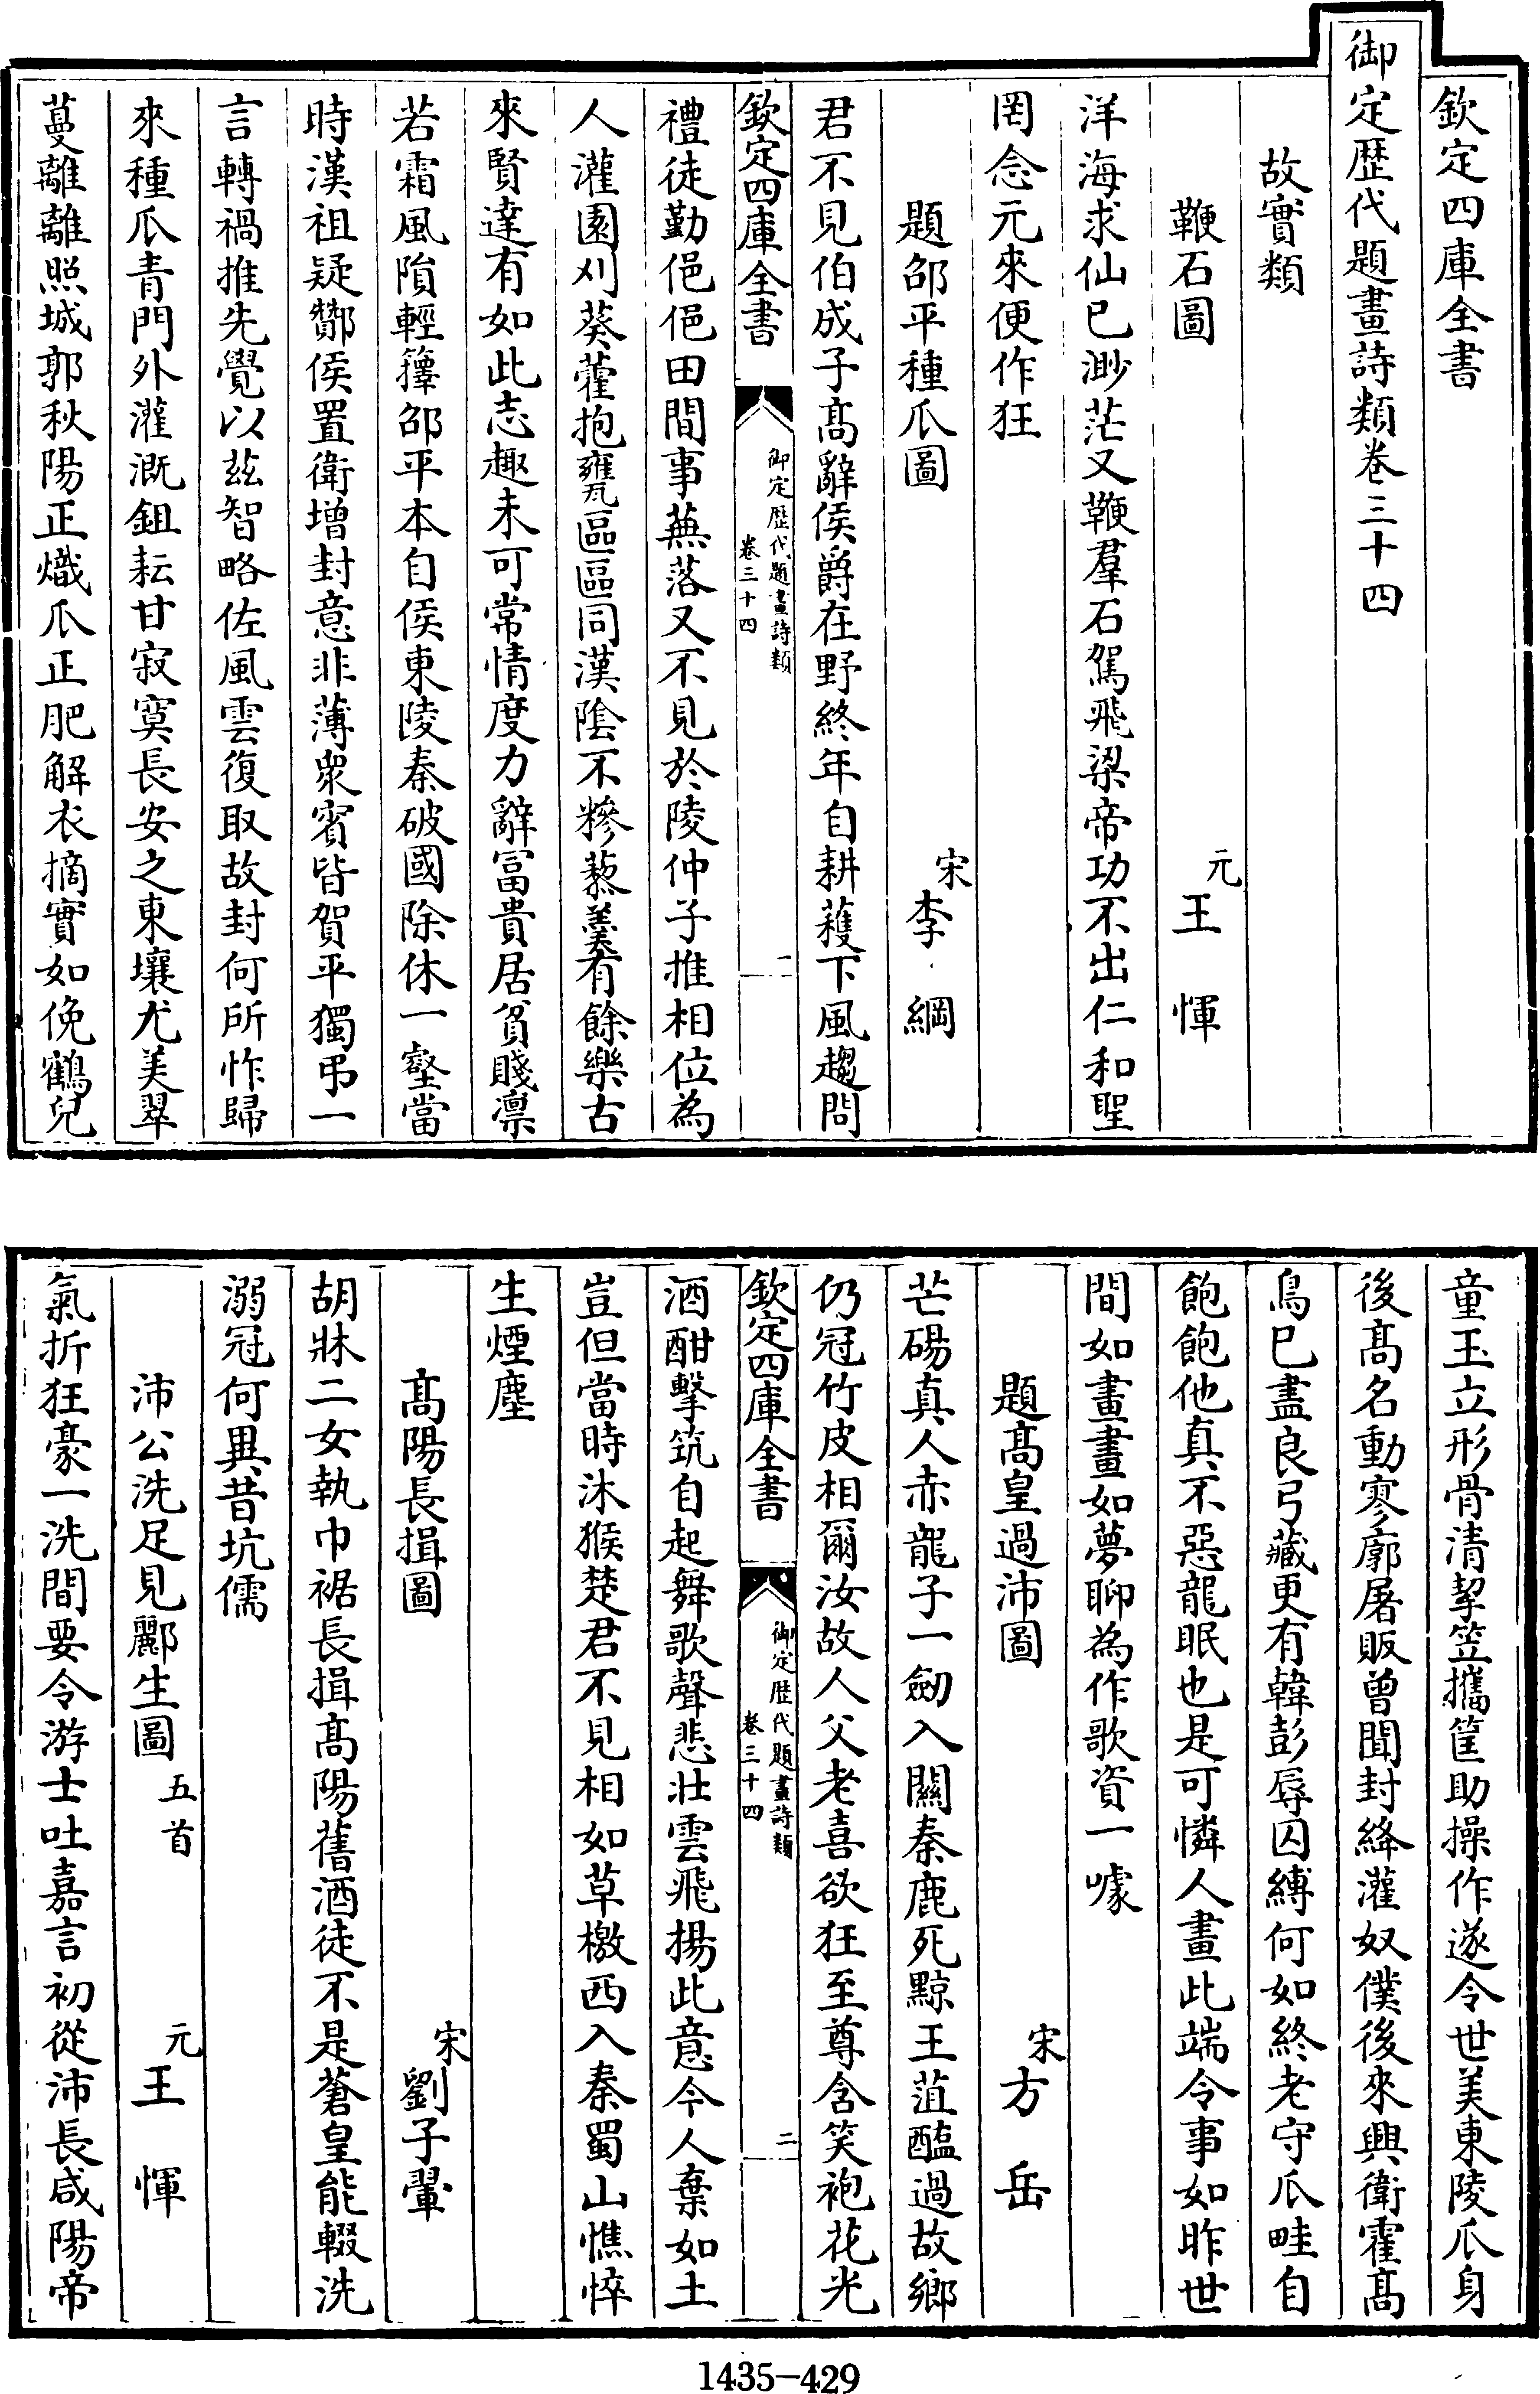 欽定四庫全書
御定歷代題畫詩類卷三十四
故實類
鞭石圖 元王惲
洋海求仙已渺茫又鞭羣石駕飛梁帝功不出仁和聖
罔念元來便作狂
題邵平種瓜圖 宋李綱
君不見伯成子髙辭侯爵在野終年自耕蕿下風趨問
欽定四庫全書 御定歷代題畫詩類 卷三十四 一
禮徒勤俋俋田間事蕪落又不見於陵仲子推相位為
人灌園刈葵藿抱甕區區同漢陰不糝藜羹有餘樂古
來賢達有如此志趣未可常情度力辭富貴居貧賤凛
若霜風隕輕籜邵平本自侯東陵秦破國除休一壑當
時漢祖疑酇侯置衛增封意非薄衆賓皆賀平獨弔一
言轉禍推先覺以兹智略佐風雲復取故封何所怍歸
來種瓜青門外灌溉鉏耘甘寂寞長安之東壤尤美翠
蔓離離照城郭秋陽正熾瓜正肥解衣摘實如俛鶴兒
童玉立形骨清挈笠攜筐助操作遂令世美東陵瓜身
後髙名動寥廓屠販曾聞封絳灌奴僕後來興衛霍髙
鳥已盡良弓藏更有韓彭辱囚縛何如終老守瓜畦自
飽飽他真不惡龍眠也是可憐人畫此端令事如昨世
間如畫畫如夢聊為作歌資一噱
題髙皇過沛圖 宋方岳
芒碭真人赤龍子一劒入關秦鹿死黥王菹醢過故鄉
仍冠竹皮相爾汝故人父老喜欲狂至尊含笑袍花光
欽定四庫全書 御定歷代題畫詩類 卷三十四 二
酒酣擊筑自起舞歌聲悲壯雲飛揚此意今人棄如土
豈但當時沐猴楚君不見相如草檄西入秦蜀山憔悴
生煙塵
髙陽長揖圖 宋劉子翬
胡牀二女執巾裾長揖髙陽舊酒徒不是蒼皇能輟洗
溺冠何異昔坑儒
沛公洗足見酈生圖 五首 元王惲
氣折狂豪一洗間要令游士吐嘉言初從沛長咸陽帝
1435-429